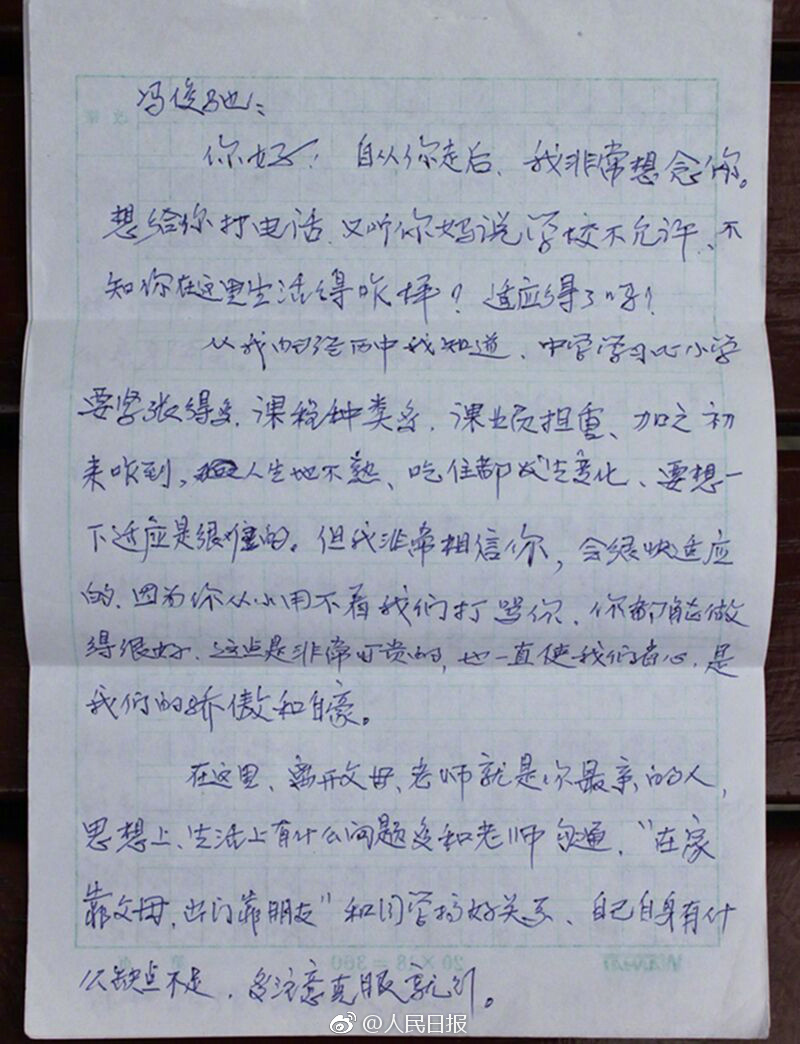 冯俊驰:
你好! 自从你走后、我非常想念你。
想给你打电话、又听你妈说学校不允许、不
知你在这里生活得咋样? 适应得了吗?
从我的经历中我知道、中学学习比小学
要紧张得多、课程种类多、课业负担重、加之初
来咋到、人生地不熟、吃住都发生变化、要想一
下适应是很难的。但我非常相信你, 会很快适应
的、因为你从小用不着我们打骂你、你都能做
得很好、这点是非常可贵的, 也一直使我们省心、是
我们的骄傲和自豪。
在这里、离开父母、老师就是你最亲的人,
思想上、生活上有什么问题多和老师勾通、"在家
靠父母, 出门靠朋友"和同学搞好关系、自己自身有什
么缺点不足、多注意克服就行。
20×18=360
@人民日报